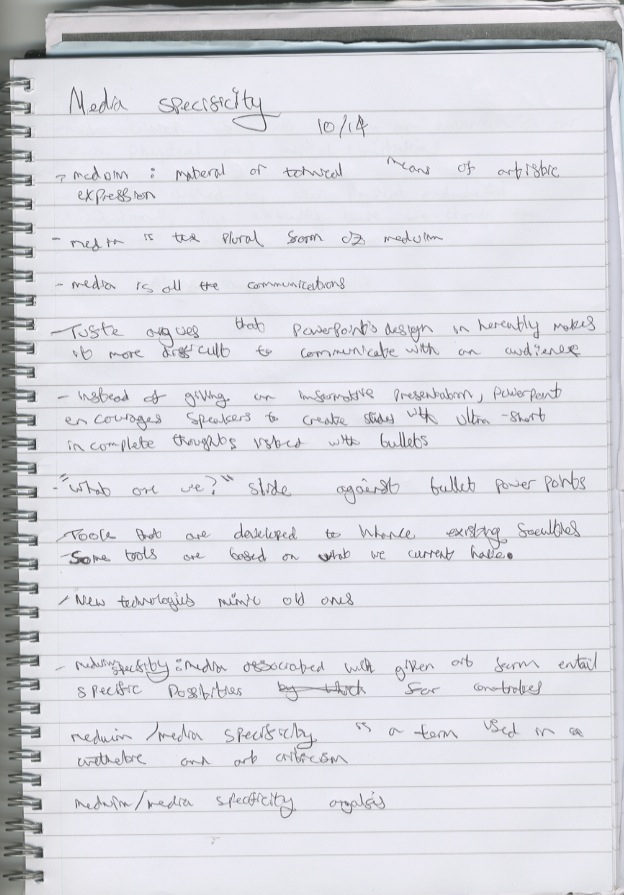 Media specificity
10/14
- medium : material or technical means of artistic
expression
- media is the plural form of medium
- media is all the communications
- Tufte argues that PowerPoint's design inherently makes
it more difficult to communicate with an audience
- instead of giving an informative presentation, PowerPoint
encourages speakers to create slides with ultra-short
incomplete thoughts listed with bullets
- "what are we?" slide against bullet power points
Tools that are developed to existing faculties
- Some tools are based on what we current have.
New technologies mimic old ones
- medium specificity : media associated with given art form entail
specific possibilities by which for
medium/media specificity is a term used in
aesthetic and art criticism
medium/media specificity analysis